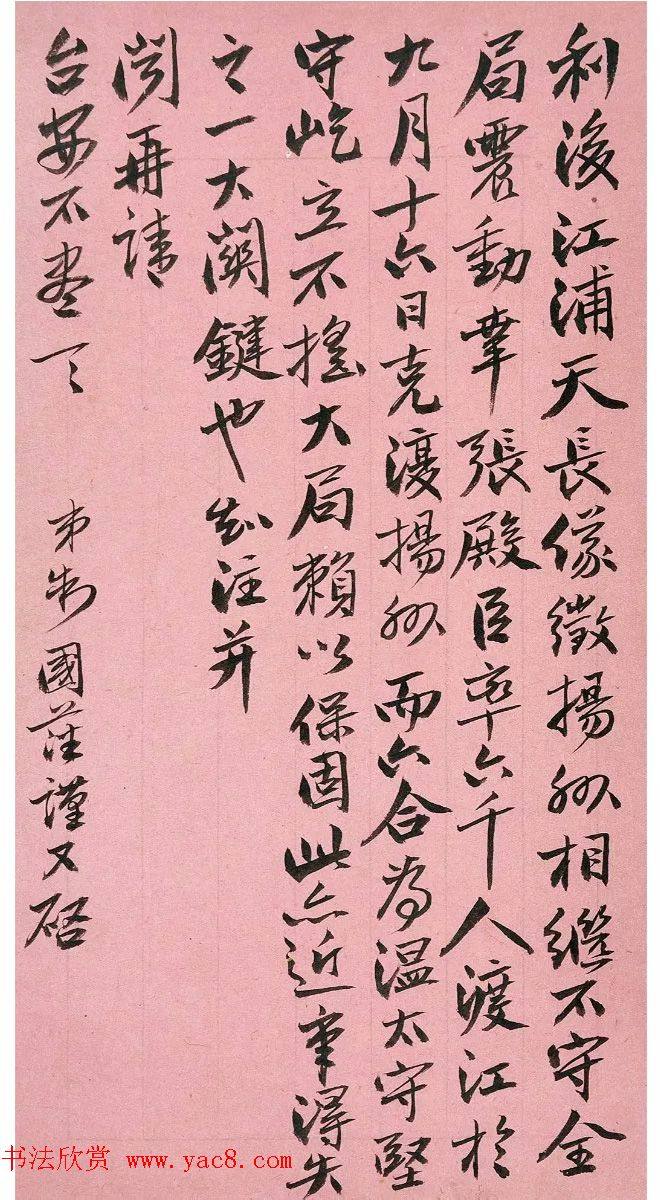 利後江浦天長儀徵揚州相繼不守全
局震動幸張殿臣率六千人渡江於
九月十六日克復揚州而六合為溫太守堅
守屹立不搖大局賴以保固此亦近事得失
之一大關鍵也知注并
聞再請
台安不盡一一
弟制國荃謹又啟
书法欣赏 www.yac8.com